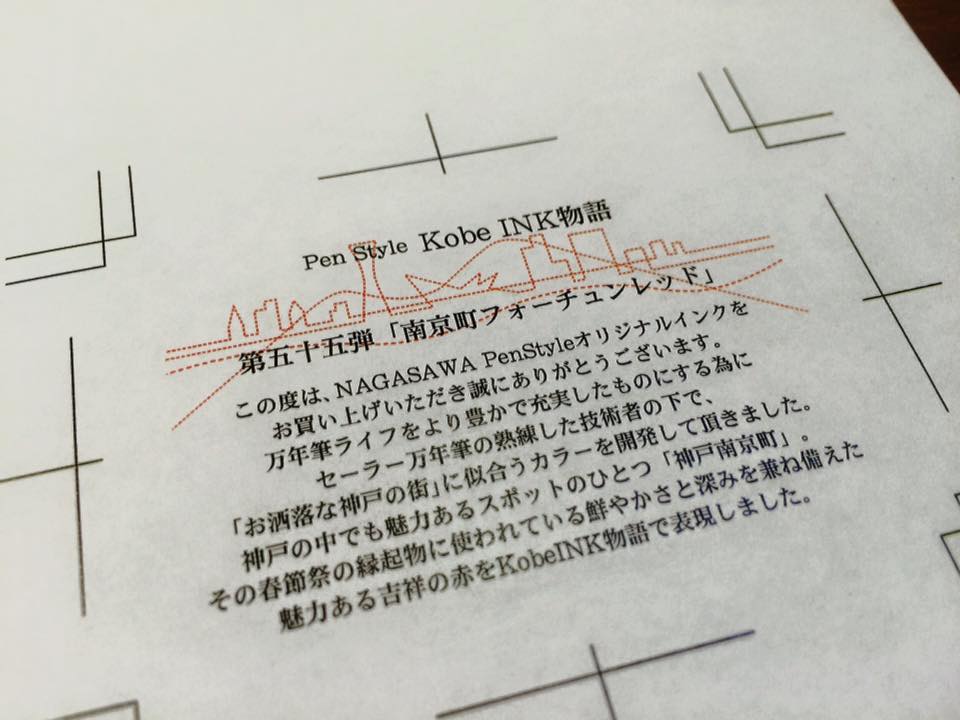 Pen Style Kobe INK物語
第五十五弾「南京町フォーチュンレッド」
この度は、NAGASAWA PenStyleオリジナルインクを
お買い上げいただき誠にありがとうございます。
万年筆ライフをより豊かで充実したものにする為に
セーラー万年筆の熟練した技術者の下で、
「お洒落な神戸の街」に似合うカラーを開発して頂きました。
神戸の中でも魅力あるスポットのひとつ「神戸南京町」。
その春節祭の縁起物に使われている鮮やかさと深みを兼ね備えた
魅力ある吉祥の赤をKobeINK物語で表現しました。